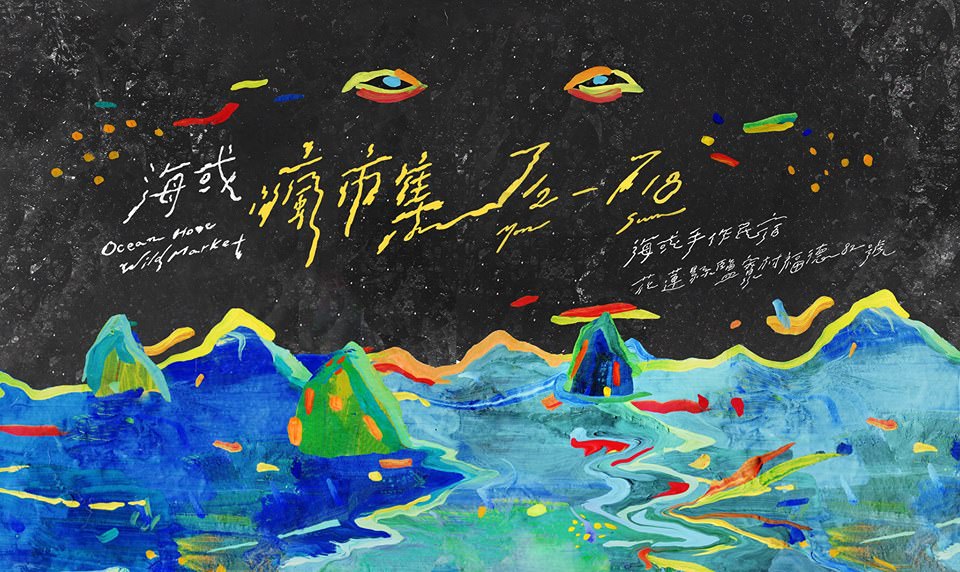 海或 瘋市集 7/2 – 7/8
Ocean Home
Wild Market
Mon Sun
海或手作民宿
花蓮縣鹽寮村福德82號